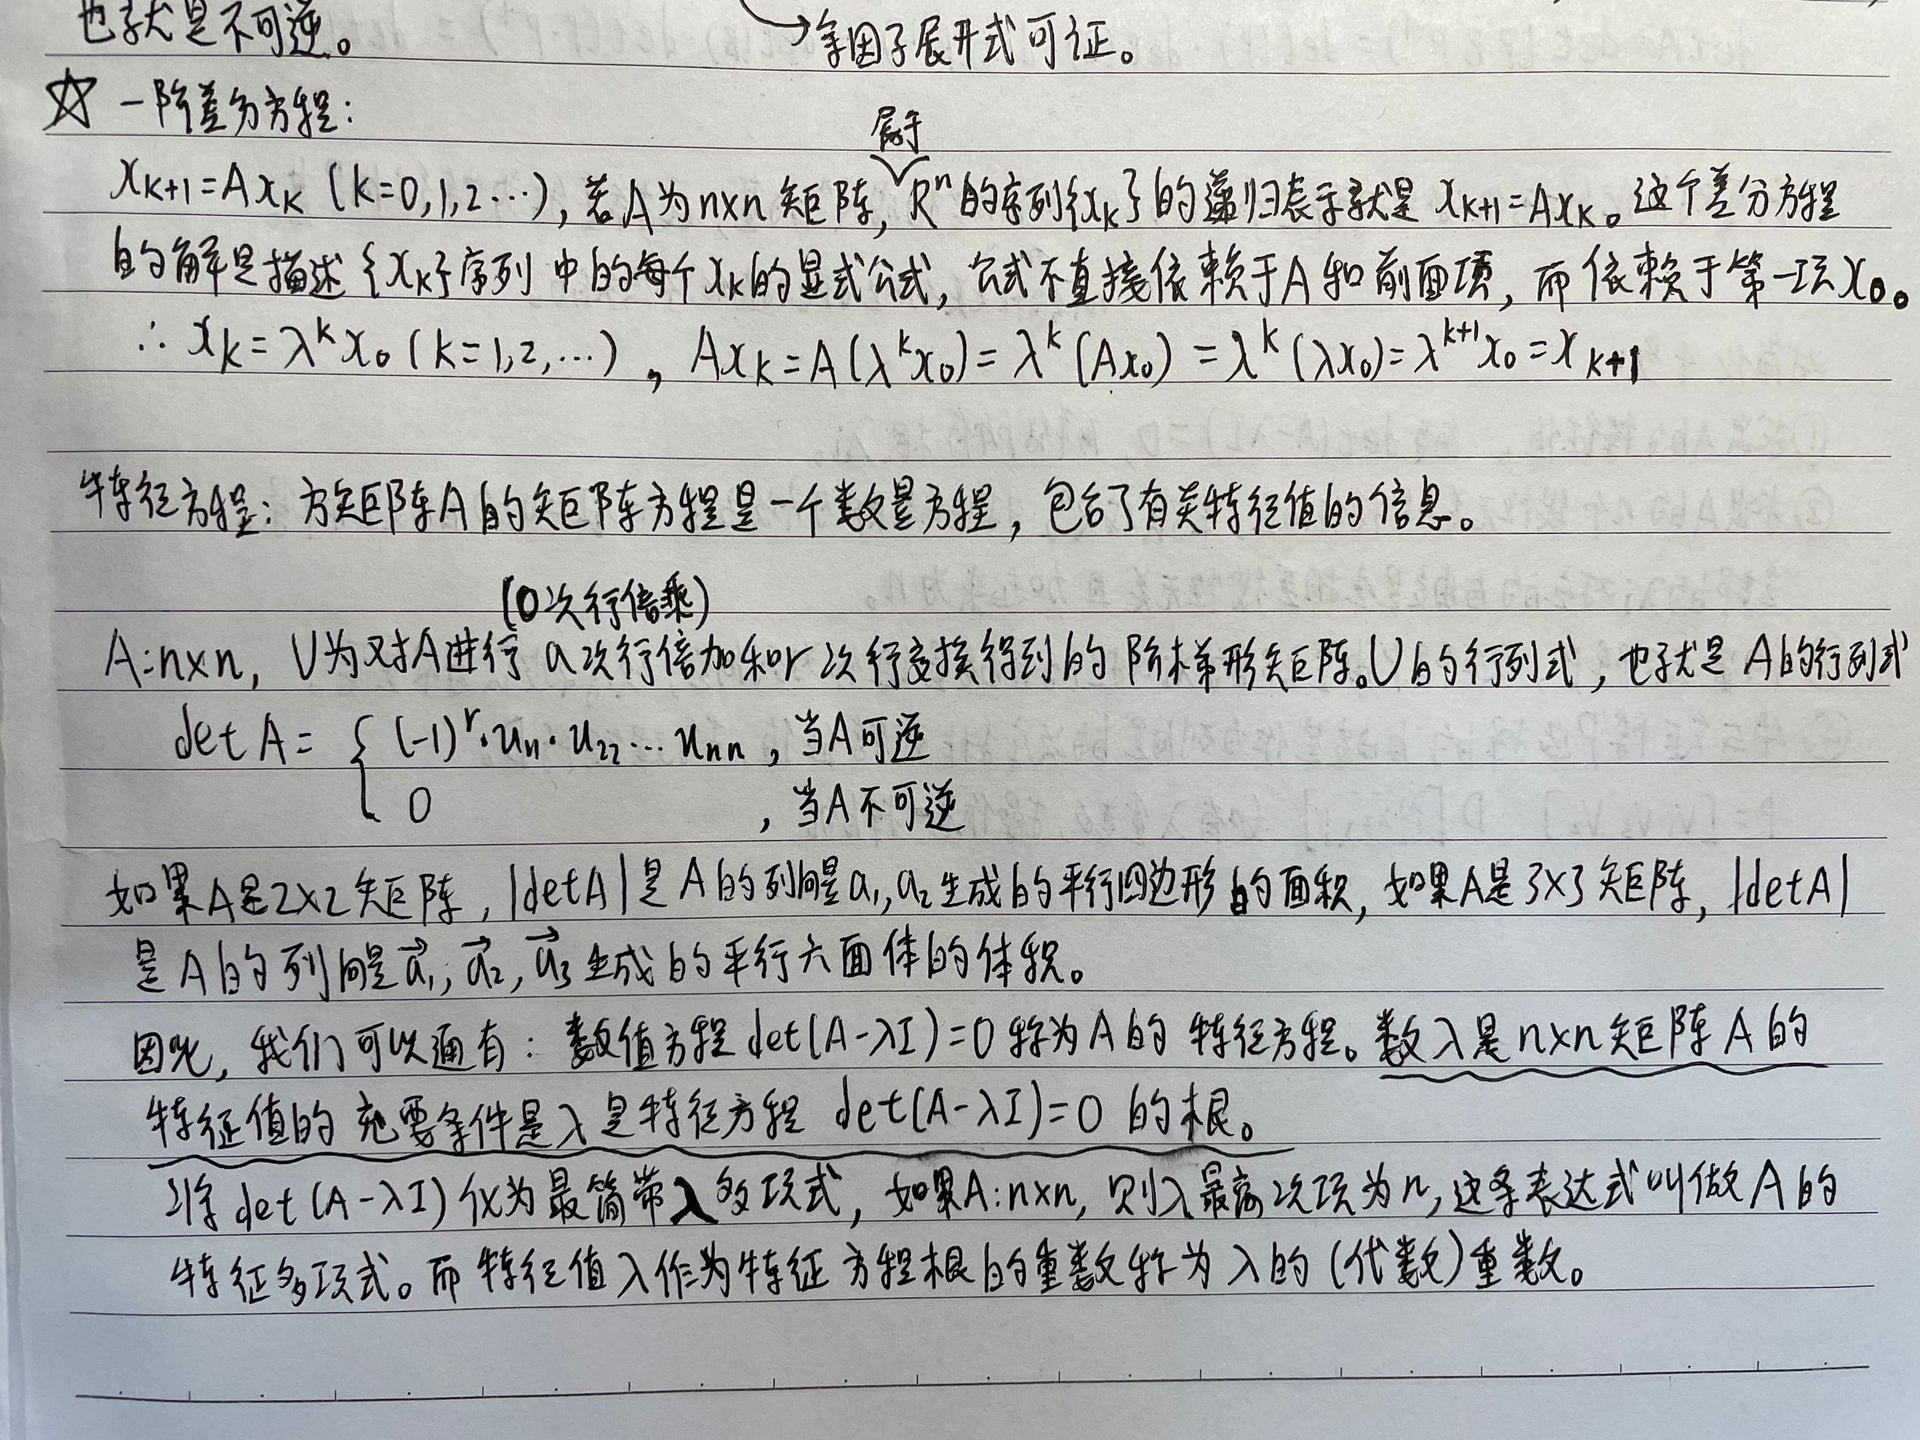 也就是不可逆。
→余因子展开式可证。
☆ 一阶差分方程:
属于
xₖ₊₁=Axₖ (k=0,1,2…), 若A为n×n矩阵, Rⁿ的序列{xₖ}的递归表示就是 xₖ₊₁=Axₖ。这个差分方程
的解是描述{xₖ}序列中的每个xₖ的显式公式, 公式不直接依赖于A和前面项, 而依赖于第一项x₀。
∴ xₖ=λᵏx₀ (k=1,2,…), Axₖ=A(λᵏx₀)=λᵏ(Ax₀)=λᵏ(λx₀)=λᵏ⁺¹x₀=xₖ₊₁
特征方程: 方矩阵A的矩阵方程是一个数量方程, 包含了有关特征值的信息。
(0次行倍乘)
A:n×n, U为对A进行a次行倍加和r次行交换得到的阶梯形矩阵。U的行列式, 也就是A的行列式
det A= { (-1)ʳ·u₁₁·u₂₂…uₙₙ, 当A可逆
0 , 当A不可逆
如果A是2×2矩阵, |detA|是A的列向量a₁,a₂生成的平行四边形的面积, 如果A是3×3矩阵, |detA|
是A的列向量a⃗₁, a⃗₂, a⃗₃生成的平行六面体的体积。
因此, 我们可以通有: 数值方程det(A-λI)=0称为A的特征方程。数λ是n×n矩阵A的
特征值的充要条件是λ是特征方程 det(A-λI)=0 的根。
将det(A-λI)化为最简带λ多项式, 如果A:n×n, 则λ最高次项为n, 这条表达式叫做A的
特征多项式。而特征值λ作为特征方程根的重数称为λ的(代数)重数。